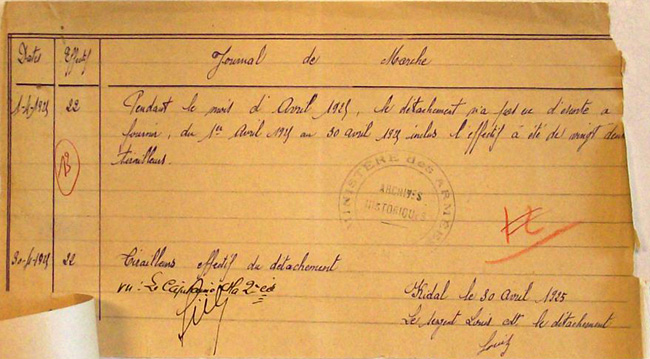 Dates Effectif Journal de Marche
1-4-1925 22 Pendant le mois d'Avril 1925, le détachement n'a pas eu d'escorte a
fournir, du 1er Avril 1925 au 30 avril 1925 inclus l'effectif à été de vingt deux
tirailleurs.
MINISTERE des ARMEES
ARCHIVES
HISTORIQUES
30-4-1925 22 Tirailleurs effectif du détachement
vu : Le Capitaine 2e Cie
Kidal le 30 Avril 1925
Le sergent Louis le détachement